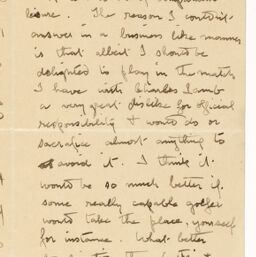 leisure. The reason I couldn't
answer in a business like manner
is that albeit I should be
delighted to play in the match
I have with Charles Lamb
a very great dislike for official
responsibility & would do or
sacrifice almost anything to
avoid it. I think it
would be so much better if
some really capable golfer
would take the place, yourself
for instance. What better